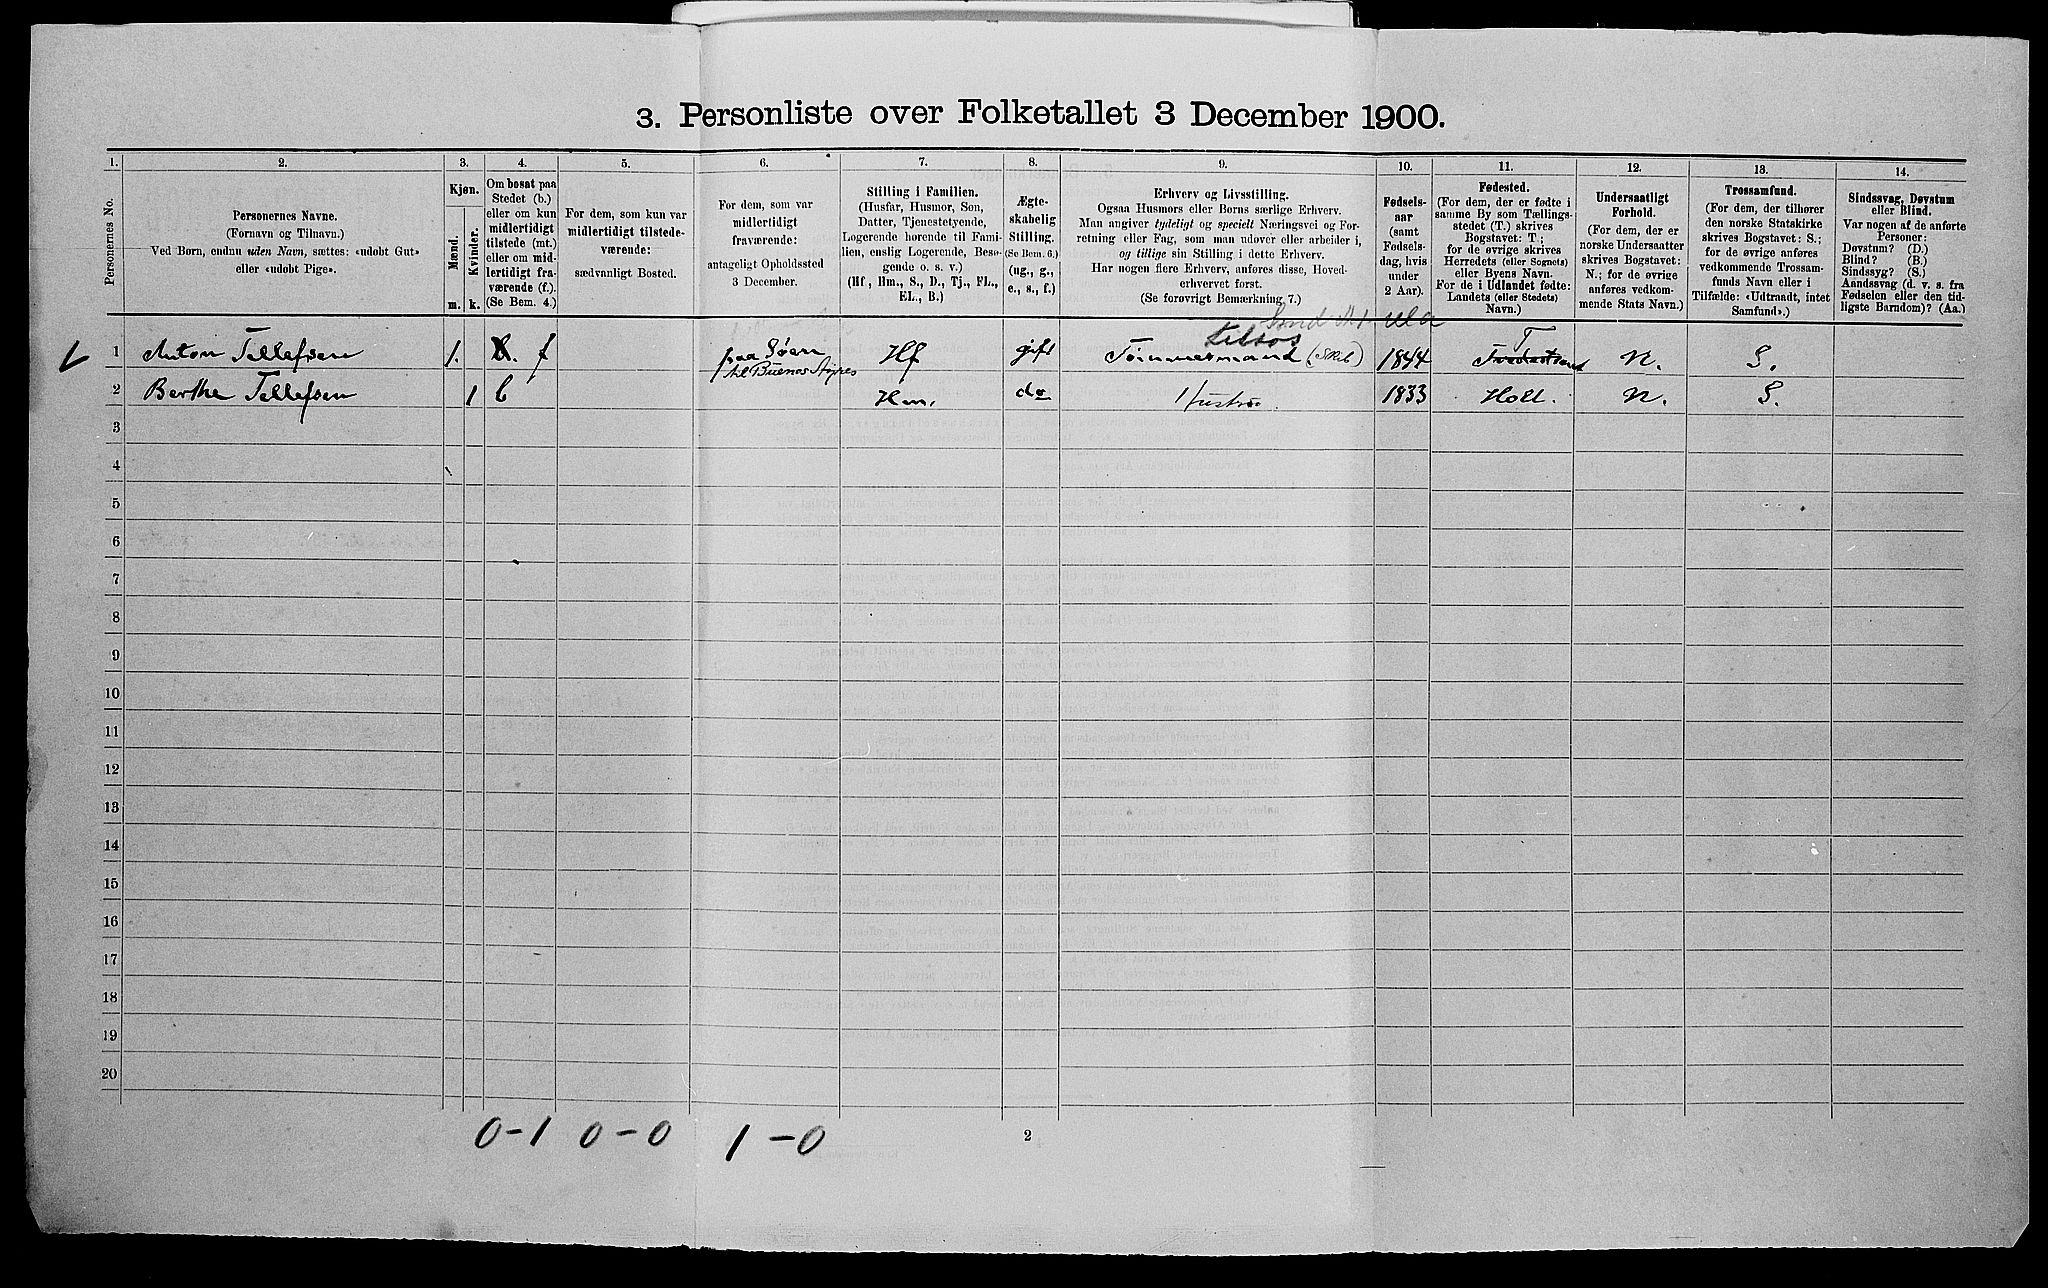 3. Personliste over Folketallet 3 December 1900.
1. 2. 3. 4. 5. 6. 7. 8. 9. 10. 11. 12. 13. 14.
Personernes No.
Personernes Navne.
(Fornavn og Tilnavn.)
Ved Børn, endnu uden Navn, sættes: «udøbt Gut»
eller «udøbt Pige».
Kjøn.
Mænd.
Kvinder.
m. k.
Om bosat paa
Stedet (b.)
eller om kun
midlertidigt
tilstede (mt.)
eller om mid-
lertidigt fra-
værende (f.).
(Se Bem. 4.)
For dem, som kun var
midlertidigt tilstede-
værende:
sædvanligt Bosted.
For dem, som var
midlertidigt
fraværende:
antageligt Opholdssted
3 December.
Stilling i Familien.
(Husfar, Husmor, Søn,
Datter, Tjenestetyende,
Logerende hørende til Fami-
lien, enslig Logerende, Besø-
gende o. s. v.)
(Hf., Hm., S., D., Tj., FL.,
EL., B.)
Ægte-
skabelig
Stilling.
(Se Bem. 6.)
(ug., g.,
e., s., f.)
Erhverv og Livsstilling.
Ogsaa Husmors eller Børns særlige Erhverv.
Man angiver tydeligt og specielt Næringsvei og For-
retning eller Fag, som man udøver eller arbeider i,
og tillige sin Stilling i dette Erhverv.
Har nogen flere Erhverv, anføres disse, Hoved-
erhvervet først.
(Se forøvrigt Bemærkning 7.)
Fødsels-
aar
(samt
Fødsels-
dag, hvis
under
2 Aar).
Fødested.
(For dem, der er fødte i
samme By som Tællings-
stedet (T.) skrives
Bogstavet: T.;
for de øvrige skrives
Herredets (eller Sognets)
eller Byens Navn.
For de i Udlandet fødte:
Landets (eller Stedets)
Navn.)
Undersaatligt
Forhold.
(For dem, der er
norske Undersaatter
skrives Bogstavet:
N.; for de øvrige
anføres vedkom-
mende Stats Navn.)
Trossamfund.
(For dem, der tilhører
den norske Statskirke
skrives Bogstavet: S.;
for de øvrige anføres
vedkommende Trossam-
funds Navn eller i
Tilfælde: «Udtraadt, intet
Samfund».)
Sindssvag, Døvstum
eller Blind.
Var nogen af de anførte
Personer:
Døvstum? (D.)
Blind? (B.)
Sindssyg? (S.)
Aandssvag (d. v. s. fra
Fødselen eller den tid-
ligste Barndom)? (Aa.)
tilsøs
1 Anton Tellefsen 1. b. f paa Søen Hf gift Tømmermand (Skib) 1844 T N. S.
til Buenos Ayres
2 Berthe Tellefsen 1 b Hm. do Hustru. 1833 Holt. N. S.
3
4
5
6
7
8
9
10
11
12
13
14
15
16
17
18
19
20
0-1 0-0 1-0
2